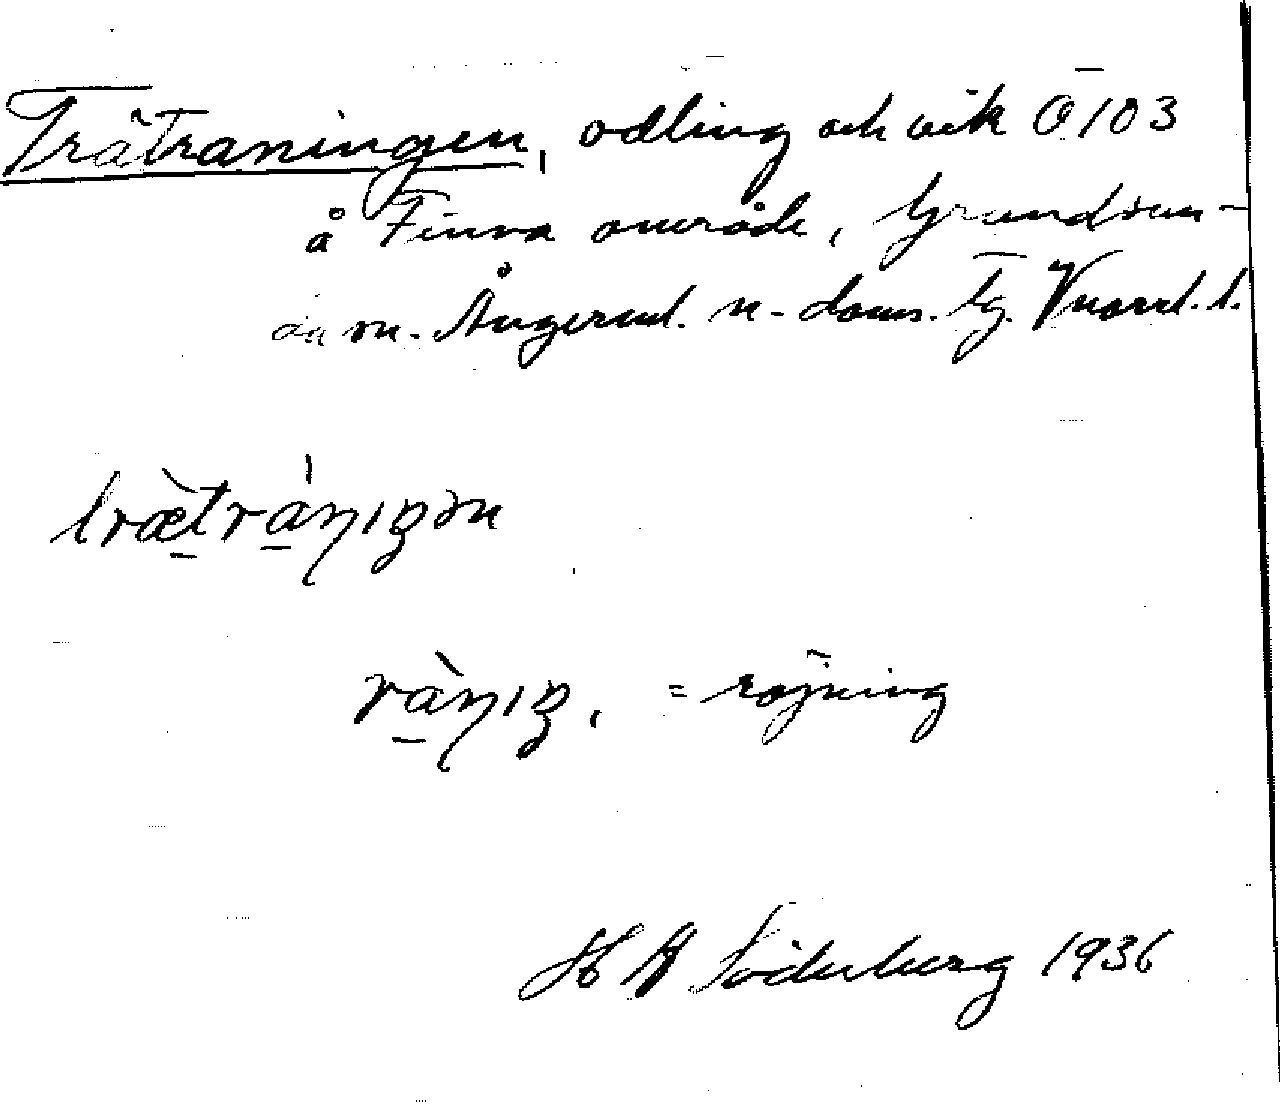 Träträningen, odling och vik Ö 103
å Finna område, Grundsun-
da sn. Ångerml. n. doms. tg. Vnorrl. l.
trætràṇıŋən
ràṇıŋ, = röjning
H A Söderberg 1936